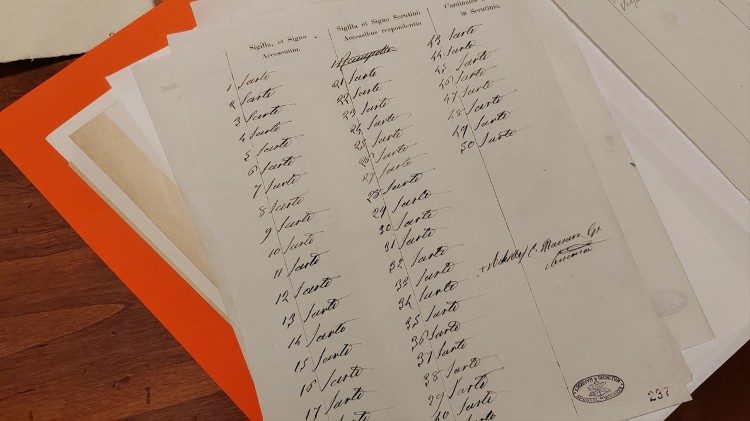 Sigilla, et Signa
Accessuum.
1 Sarto
2 Sarto
3 Sarto
4 Sarto
5 Sarto
6 Sarto
7 Sarto
8 Sarto
9 Sarto
10 Sarto
11 Sarto
12 Sarto
13 Sarto
14 Sarto
15 Sarto
16 Sarto
17 Sarto
Sigilla et Signa Scrutinii
Accessibus respondentia
21 Sarto
22 Sarto
23 Sarto
24 Sarto
25 Sarto
26 Sarto
27 Sarto
28 Sarto
29 Sarto
30 Sarto
31 Sarto
32 Sarto
33 Sarto
34 Sarto
35 Sarto
36 Sarto
37 Sarto
38 Sarto
39 Sarto
40 Sarto
in Scrutinio.
43 Sarto
44 Sarto
45 Sarto
46 Sarto
47 Sarto
48 Sarto
49 Sarto
50 Sarto
237